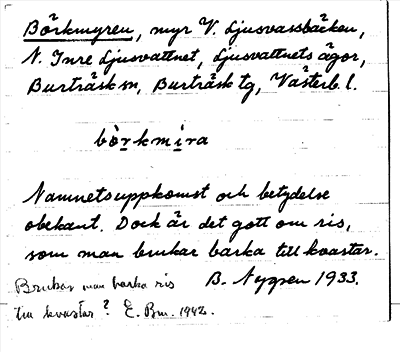 Börkmyren, myr V. Ljusvassbäcken,
N. Inre Ljusvattnet, Ljusvattnets ägor,
Burträsk sn, Burträsk tg, Västerb. l.
bò̀rkmira
Namnets uppkomst och betydelse
obekant. Dock är det gott om ris,
som man brukar barka till kvastar.
B. Nygren 1933.
Brukar man barka ris
till kvastar? E. Bm. 1942.